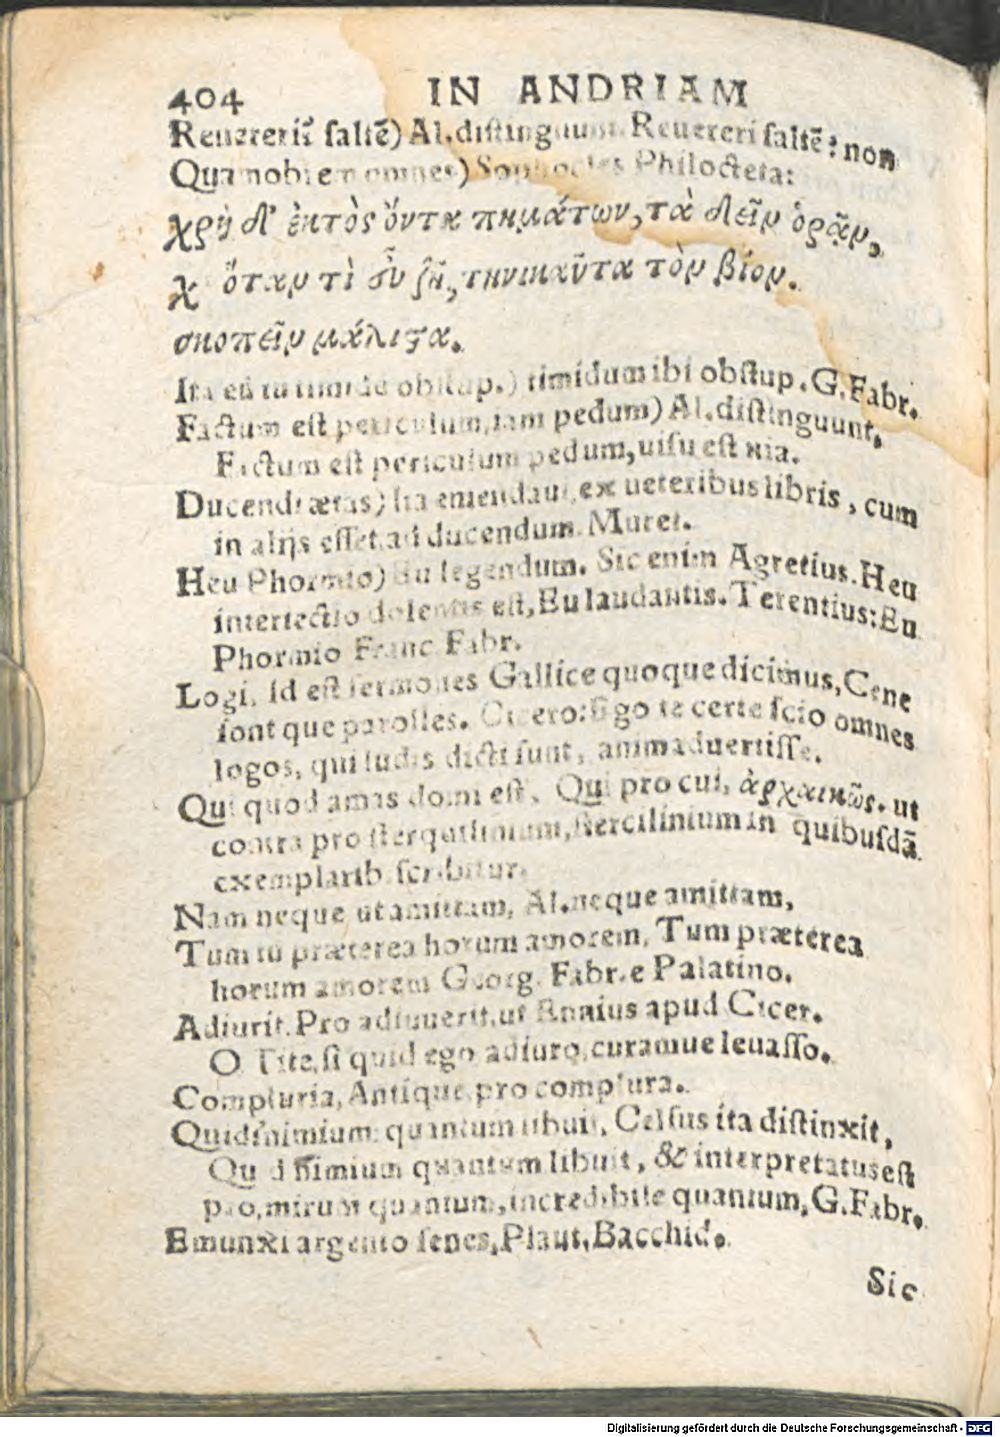 404 IN ANDRIAM
Reuereris saltē) Al. distinguunt. Reuereri saltē: non
Quam ob rem omnes) Sophocles Philocteta:
χρὴ δ' ἐκτὸς ὄντα πημάτων, τὰ δεῖν ὁρᾷν,
χ ὅταν τὶ εὖ ζῇ, τηνικαῦτα τὸν βίον.
σκοπεῖν μάλιστα.
Ita eū tu timide obstup.) timidum ibi obstup. G. Fabr.
Factum est periculum, iam pedum) Al. distinguunt,
Factum est periculum pedum, uisu est uia.
Ducendi ætas) Ita emendaui, ex ueteribus libris, cum
in alijs esset, ad ducendum. Muret.
Heu Phormio) Eu legendum. Sic enim Agretius. Heu
interiectio dolentis est, Eu laudantis. Terentius: Eu
Phormio Franc. Fabr.
Logi, Id est sermones Gallice quoque dicimus, Cene
sont que parolles. Cicero: Ego te certe scio omnes
logos, qui ludis dicti sunt, animaduertisse.
Qui quod amas domi est. Qui pro cui, ἀρχαικῶς. ut
contra pro sterquilinium, stercilinium in quibusdā
exemplarib. scribitur.
Nam neque ut amittam, Al. neque amittam,
Tum tu præterea horum amorem, Tum præterea
horum amorem Georg. Fabr. e Palatino.
Adiurit. Pro adiuuerit, ut Ennius apud Cicer.
O Tite, si quid ego adiuro, curamue leuasso.
Compluria, Antique pro complura.
Quid nimium quantum libuit, Celsus ita distinxit,
Quid nimium quantum libuit, & interpretatus est
pro, mirum quantum, incredibile quantum, G. Fabr.
Emunxi argento senes, Plaut. Bacchid.
Sic
Digitalisierung gefördert durch die Deutsche Forschungsgemeinschaft - DFG